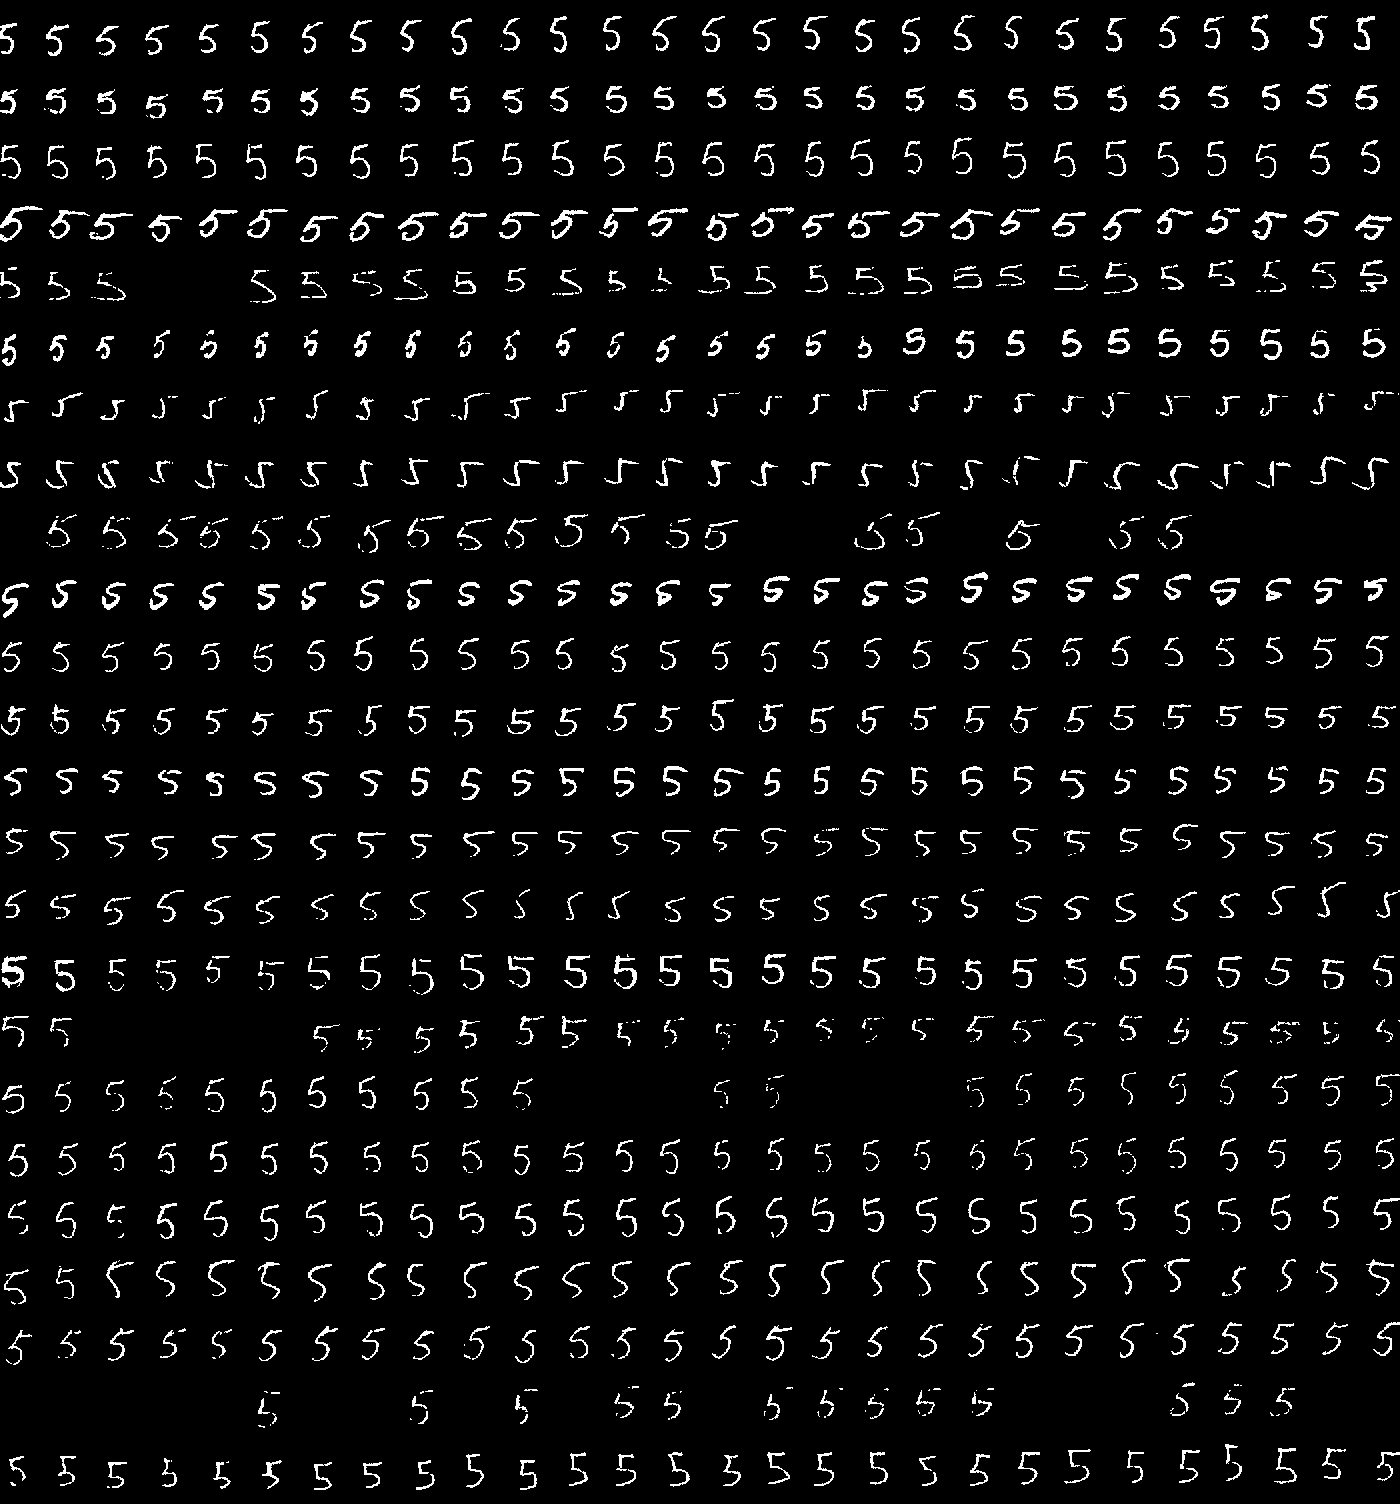 5 5 5 5 5 5 5 5 5 5 5 5 5 5 5 5 5 5 5 5 5 5 5 5 5 5 5 5
5 5 5 5 5 5 5 5 5 5 5 5 5 5 5 5 5 5 5 5 5 5 5 5 5 5 5 5
5 5 5 5 5 5 5 5 5 5 5 5 5 5 5 5 5 5 5 5 5 5 5 5 5 5 5 5
5 5 5 5 5 5 5 5 5 5 5 5 5 5 5 5 5 5 5 5 5 5 5 5 5 5 5 5
5 5 5 5 5 5 5 5 5 5 5 5 5 5 5 5 5 5 5 5 5 5 5 5 5 5
5 5 5 5 5 5 5 5 5 5 5 5 5 5 5 5 5 5 5 5 5 5 5 5 5 5 5 5
5 5 5 5 5 5 5 5 5 5 5 5 5 5 5 5 5 5 5 5 5 5 5 5 5 5 5 5
5 5 5 5 5 5 5 5 5 5 5 5 5 5 5 5 5 5 5 5 5 5 5 5 5 5 5 5
5 5 5 5 5 5 5 5 5 5 5 5 5 5 5 5 5 5 5
5 5 5 5 5 5 5 5 5 5 5 5 5 5 5 5 5 5 5 5 5 5 5 5 5 5 5 5
5 5 5 5 5 5 5 5 5 5 5 5 5 5 5 5 5 5 5 5 5 5 5 5 5 5 5 5
5 5 5 5 5 5 5 5 5 5 5 5 5 5 5 5 5 5 5 5 5 5 5 5 5 5 5 5
5 5 5 5 5 5 5 5 5 5 5 5 5 5 5 5 5 5 5 5 5 5 5 5 5 5 5 5
5 5 5 5 5 5 5 5 5 5 5 5 5 5 5 5 5 5 5 5 5 5 5 5 5 5 5 5
5 5 5 5 5 5 5 5 5 5 5 5 5 5 5 5 5 5 5 5 5 5 5 5 5 5 5 5
5 5 5 5 5 5 5 5 5 5 5 5 5 5 5 5 5 5 5 5 5 5 5 5 5 5 5 5
5 5 5 5 5 5 5 5 5 5 5 5 5 5 5 5 5 5 5 5 5 5 5 5
5 5 5 5 5 5 5 5 5 5 5 5 5 5 5 5 5 5 5 5 5 5
5 5 5 5 5 5 5 5 5 5 5 5 5 5 5 5 5 5 5 5 5 5 5 5 5 5 5 5
5 5 5 5 5 5 5 5 5 5 5 5 5 5 5 5 5 5 5 5 5 5 5 5 5 5 5 5
5 5 5 5 5 5 5 5 5 5 5 5 5 5 5 5 5 5 5 5 5 5 5 5 5 5 5 5
5 5 5 5 5 5 5 5 5 5 5 5 5 5 5 5 5 5 5 5 5 5 5 5 5 5 5 5
5 5 5 5 5 5 5 5 5 5 5 5 5
5 5 5 5 5 5 5 5 5 5 5 5 5 5 5 5 5 5 5 5 5 5 5 5 5 5 5 5